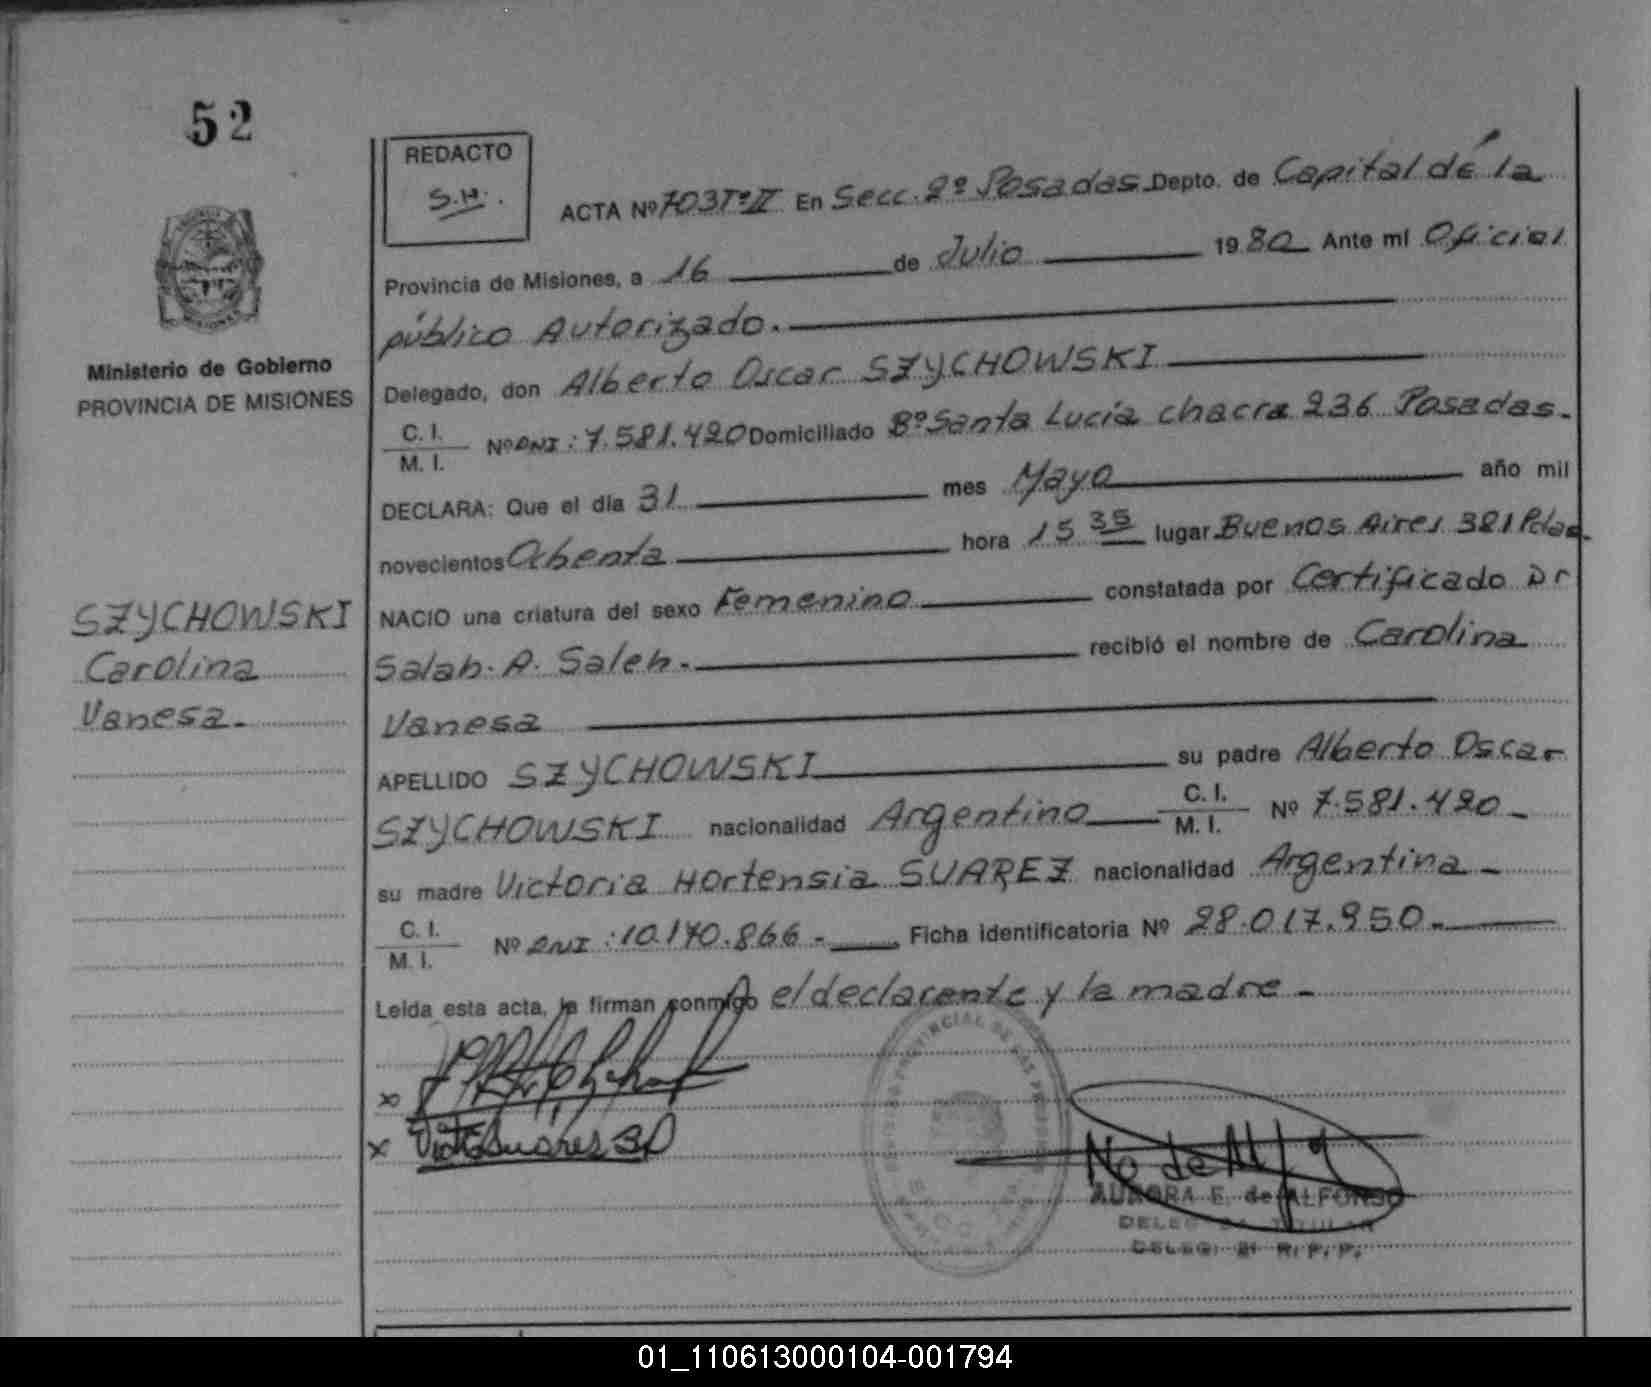 52
REDACTO
S.H.
ACTA Nº 703 Tº II En Secc. 2º Posadas Depto. de Capital de la
Provincia de Misiones, a 16 de Julio 1980 Ante mí Oficial
público Autorizado.
Ministerio de Gobierno
PROVINCIA DE MISIONES
Delegado, don Alberto Oscar SZYCHOWSKI
C. I.
M. I. Nº DNI: 7.581.420 Domiciliado Bº Santa Lucía chacra 236 Posadas.
DECLARA: Que el día 31 mes Mayo año mil
novecientos Ochenta hora 15 35 lugar Buenos Aires 381 Pdas.
SZYCHOWSKI
Carolina
Vanesa.
NACIO una criatura del sexo Femenino constatada por Certificado Dr
Salah. A. Saleh. recibió el nombre de Carolina
Vanesa
APELLIDO SZYCHOWSKI su padre Alberto Oscar
SZYCHOWSKI nacionalidad Argentino C. I. M. I. Nº 7.581.420
su madre Victoria Hortensia SUAREZ nacionalidad Argentina
C. I.
M. I. Nº DNI: 10.170.866 Ficha identificatoria Nº 28.017.950.
Leída esta acta, la firman conmigo el declarante y la madre
AURORA E. de ALFONSO
TITULAR
DELEG. 2ª R. P. P.
01_110613000104-001794